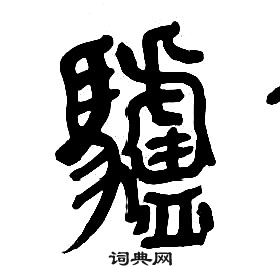 驢
词典网